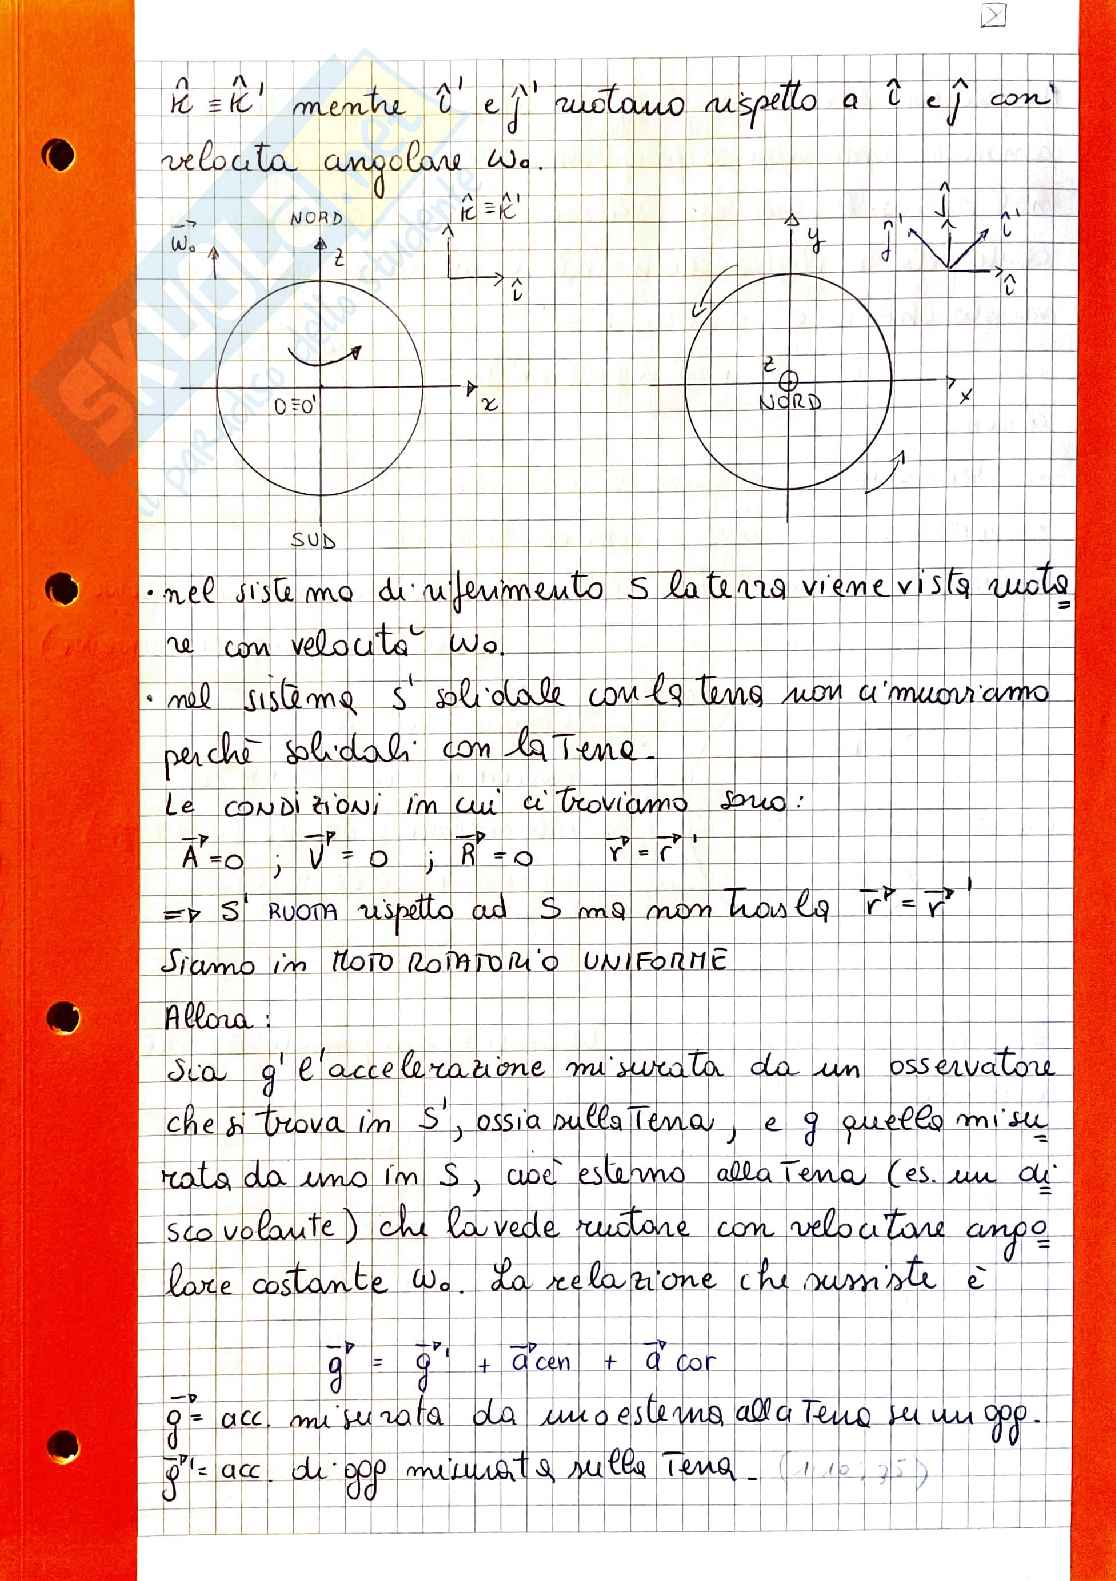 k̂ ≡ k̂' mentre î' e ĵ' ruotano rispetto a î e ĵ con
velocita angolare ω₀.
NORD
ω₀
z
k̂ ≡ k̂'
î
O≡O'
x
SUD
y
ĵ
ĵ'
î'
î
z
NORD
x
· nel sistema di riferimento S la terra viene vista ruota
re con velocità ω₀.
· nel sistema S' solidale con la terra non ci muoviamo
perchè solidali con la Terra.
Le CONDIZIONI in cui ci troviamo sono:
A⃗=0 ; V⃗=0 ; R⃗=0 r⃗=r⃗'
=> S' RUOTA rispetto ad S ma non trasla r⃗=r⃗'
Siamo in MOTO ROTATORIO UNIFORME
Allora:
Sia g' l'accelerazione misurata da un osservatore
che si trova in S', ossia sulla Terra, e g quella misu
rata da uno in S, cioè esterno alla Terra (es. un di
sco volante) che la vede ruotare con velocitare ango
lare costante ω₀. La relazione che sussiste è
g⃗ = g⃗' + a⃗cen + a⃗cor
g⃗= acc. misurata da uno esterno alla Terra su un ggp.
g⃗'= acc. di ggp misurata sulla Terra.
SKUOLA.net
il paradiso dello studente